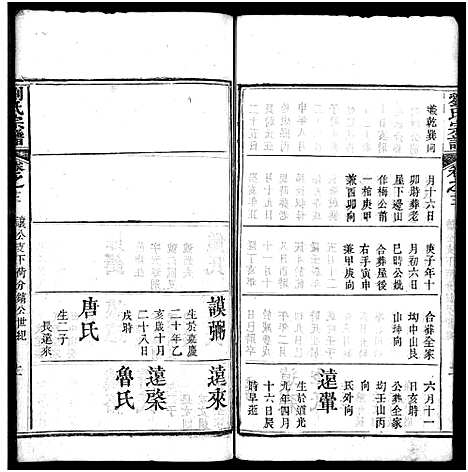 劉氏宗譜
卷之三
兼乾巽向
月十六日
卯時葬老
屋下邊山
伴梅公前
一棺庚甲
兼酉卯向
庚子年十
月初六日
巳時公魏
合葬屋後
右手寅申
兼甲庚向
合葬全家
坳中山艮
山坤向
六月十一
日亥時
公葬全家
坳王山丙
向
遠翬
氏外向
生於道光
九年四月
十六日辰
時早逝
謨彌
生於嘉慶
二十年乙
亥歲十月
二十八日
戌時
唐氏
生二子
長遠來
遠來
遠棨
魯氏
劉氏宗譜
卷之三
讓公支下荷分鎬公世紀